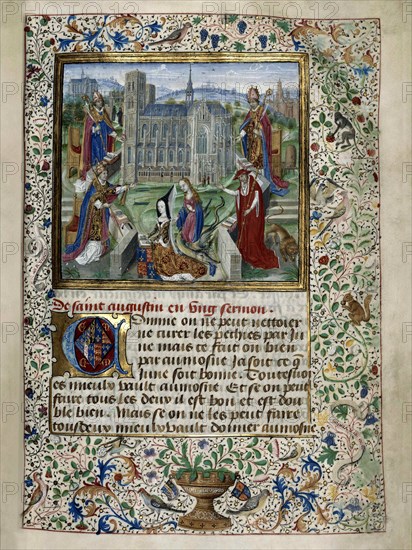 De saint augustin en ung sermon.
Comme on ne peut nettoier
ne curer les pechies par Ju
ne mais ce fait on bien
par aumosne Ja soit ce q
June soit bonne. Toutesuoi
es mieulx vault aumosne. Et se on peut
faire tous les deux il est bon et est dou
ble bien. Mais se on ne les peut faire
tous deux mieulx vault donner aumosne